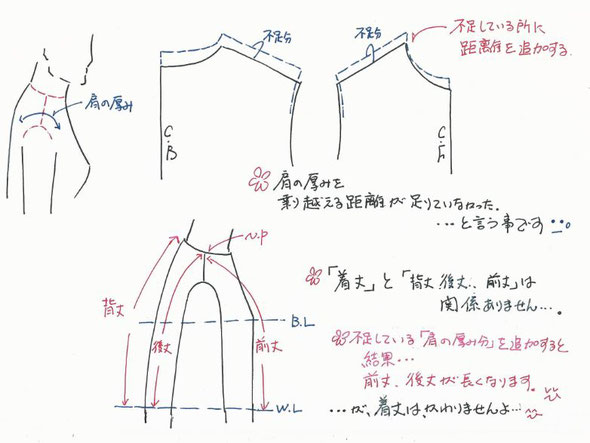 肩の厚み
不足分
C.B
不足分
C.F
不足している所に
距離を追加する.
肩の厚みを
乗り越える距離が足りていなかった.
・・・と言う事です
N.P
背丈
後丈
前丈
B.L
W.L
「着丈」と「背丈.後丈.. 前丈」は
関係ありません・・・.
不足している「肩の厚み分」を追加すると
結果・・・
前丈.後丈が長くなります.
・・・が、着丈は、かわりませんよ・・・